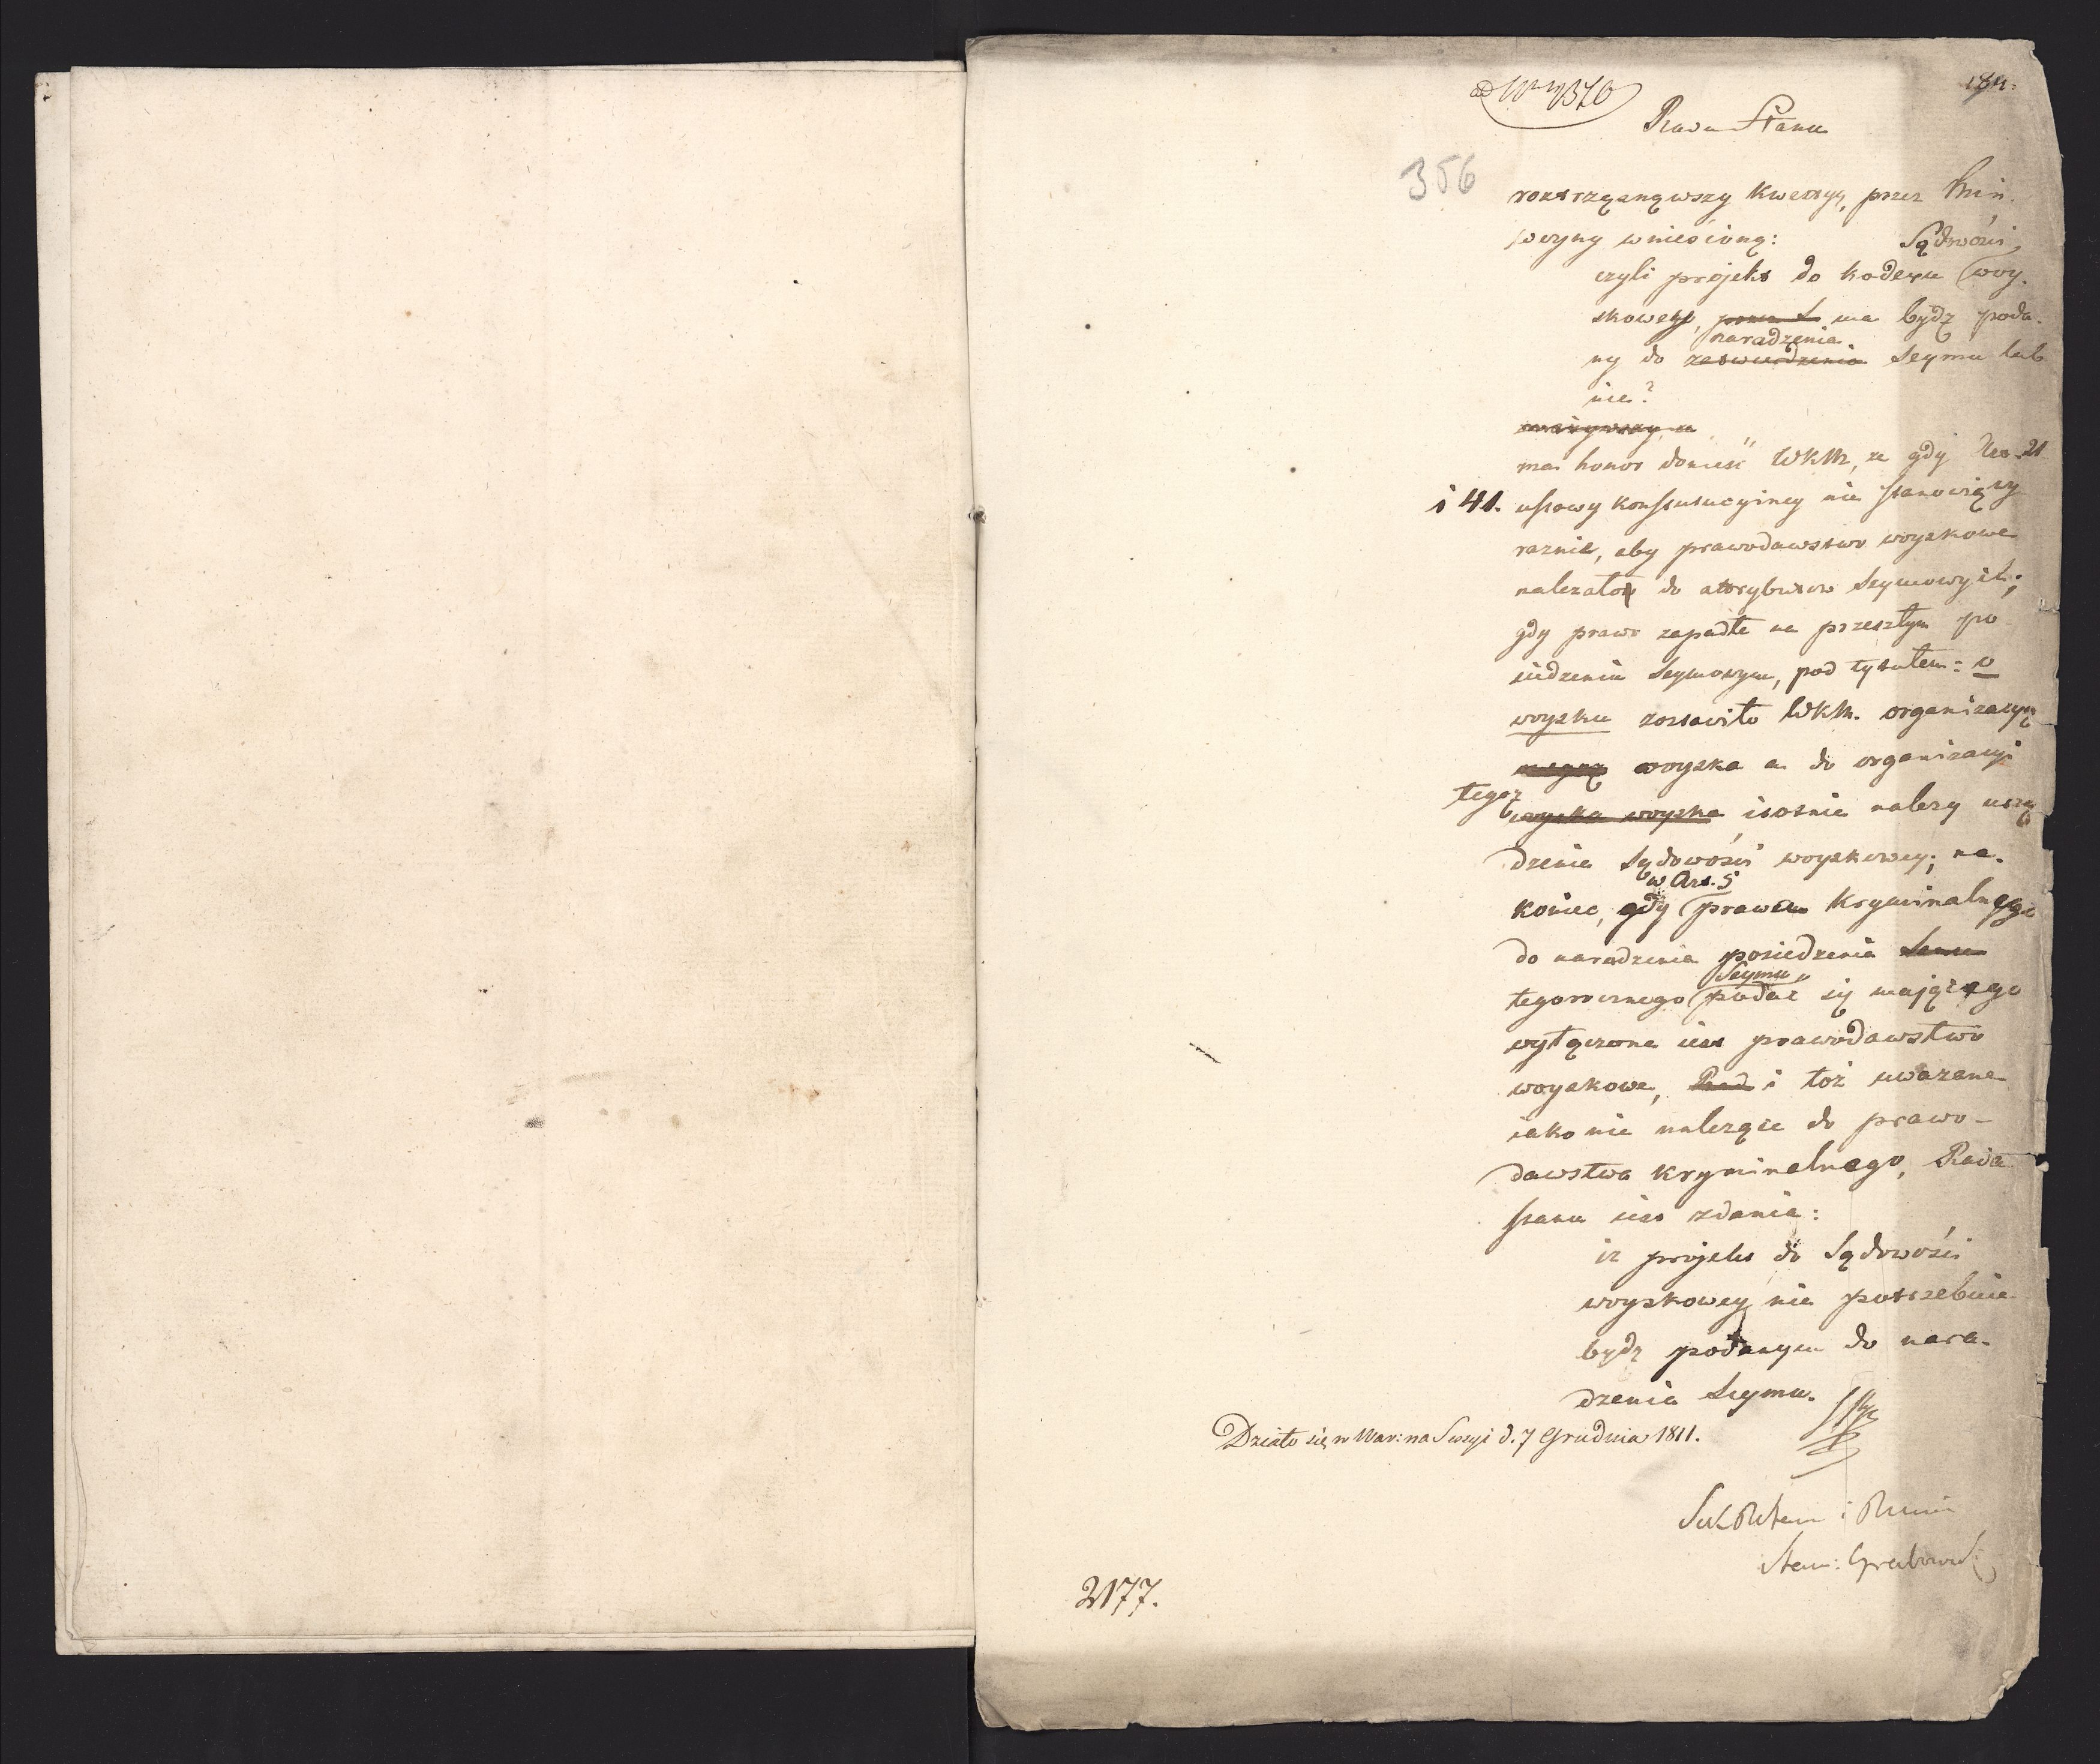 1811.
Rada Stanu
356
roztrząsnąwszy kwestyę, przez Min.
woyny wniesioną:
Sądowości
czyli projekt do kodexu woy-
skowego, ma bydz poda-
naradzenia
ny do zatwierdzenia Seymu lub
nie?
ma honor donieść WKM, że gdy Art. 21
i 41. ustawy konstytucyiney nie stanowią wy
raznie, aby prawodawstwo woyskowe
należało do attrybutow Seymowych;
gdy prawo zapadłe na przeszłym po
siedzeniu Seymowym, pod tytułem: o
woysku zostawiło WKM. organizacyą
woyska a do organizacyi
tegoż
woyska woyska istotnie należy urzą
dzenie Sądowości woyskowey; na-
w Art. 5
koniec, gdy prawa Kryminalnego
do naradzenia posiedzenia
Seymu
tegorocznego podać się mającego
wyłączone iest prawodawstwo
woyskowe, Rad i toż uważane
iako nie należące do prawo-
dawstwa kryminalnego, Rada
stanu iest zdania:
iż projekt do Sądowości
woyskowey nie potrzebuie
bydz podanym do nara-
dzenia Seymu.
Działo się w War: na Sessyi d. 7 Grudnia 1811.
Stan: Grabowski
2177.